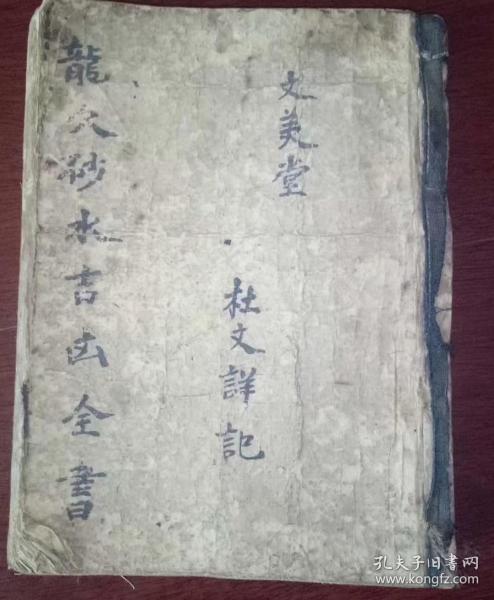 文美堂
杜文詳記
龍穴砂水吉凶全書
孔夫子旧书网
www.kongfz.com